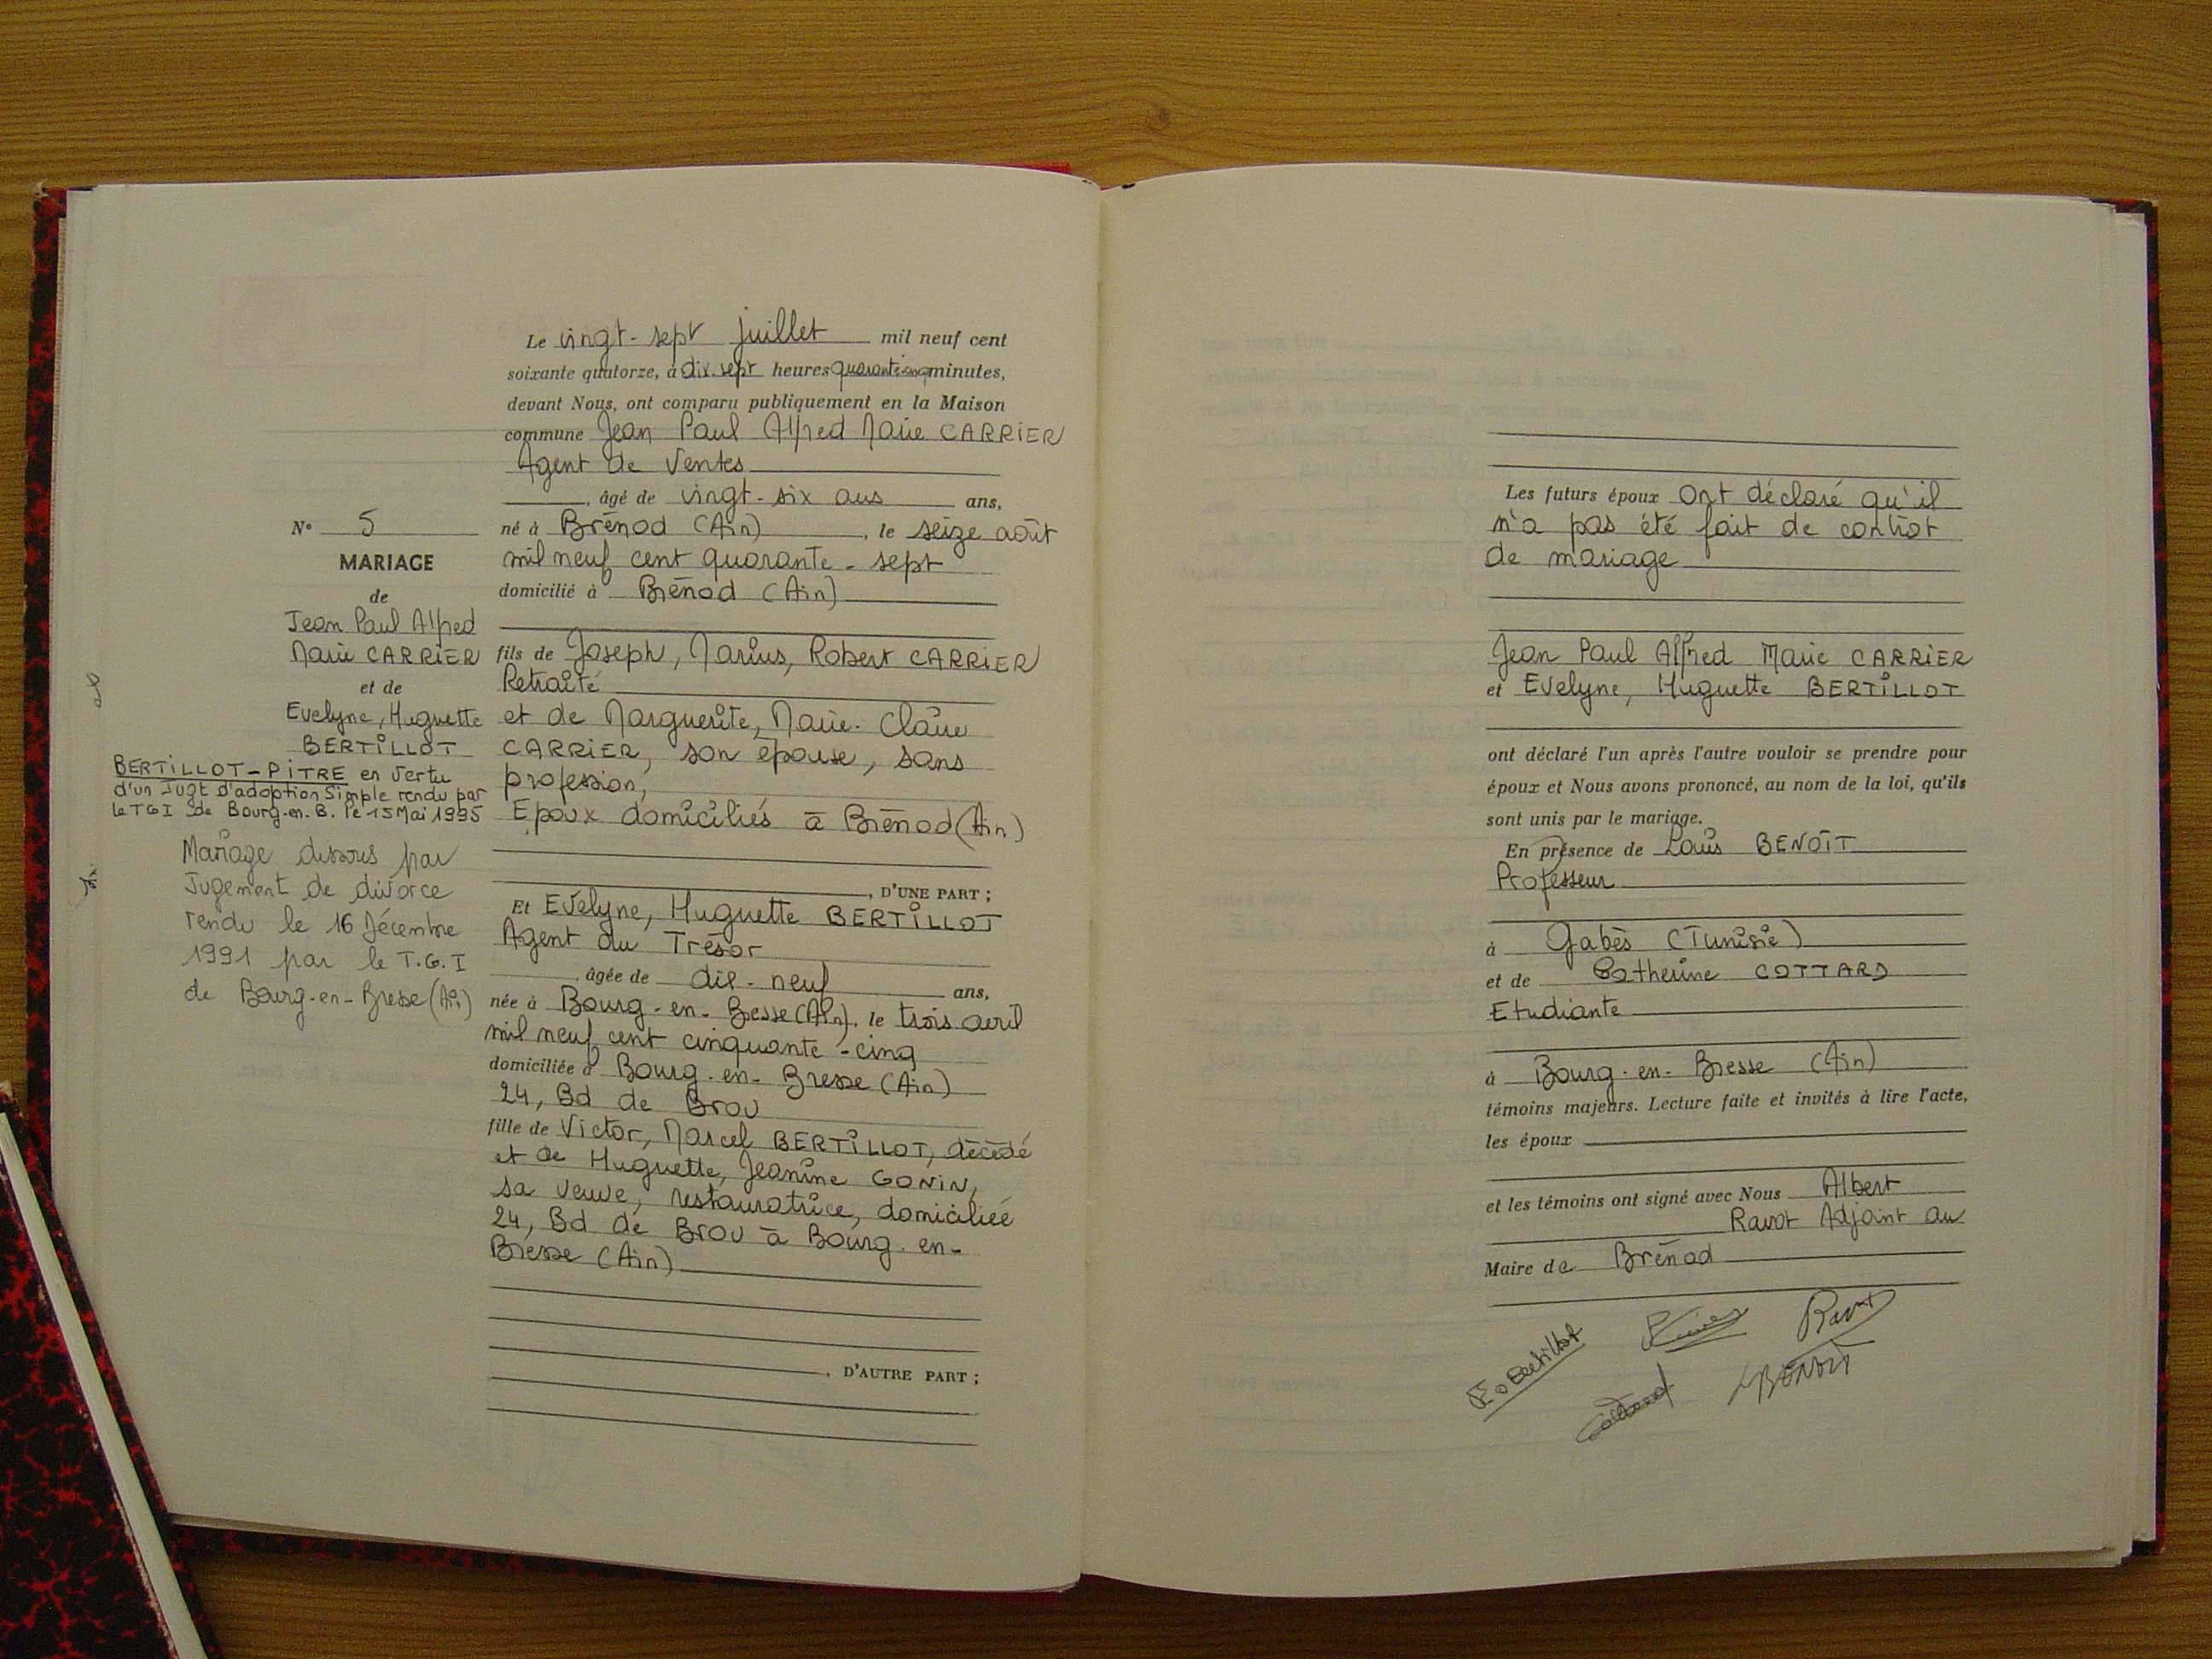 N° 5
MARIAGE
de
Jean Paul Alfred
Marie CARRIER
et de
Evelyne, Huguette
BERTILLOT
BERTILLOT-PITRE en vertu
d'un Jugt d'adoption Simple rendu par
le TGI de Bourg-en-B. le 15 Mai 1995
Mariage dissous par
Jugement de divorce
rendu le 16 Décembre
1991 par le T.G.I
de Bourg-en-Bresse (Ain)
Le vingt-sept juillet mil neuf cent
soixante quatorze, à dix-sept heures quarante-cinq minutes,
devant Nous, ont comparu publiquement en la Maison
commune Jean Paul Alfred Marie CARRIER
Agent de Ventes
, âgé de vingt-six ans ans,
né à Brénod (Ain), le seize août
mil neuf cent quarante-sept
domicilié à Brénod (Ain)
fils de Joseph, Marius, Robert CARRIER
Retraité
et de Marguerite, Marie-Claire
CARRIER, son épouse, sans
profession,
Epoux domiciliés à Brénod (Ain)
, D'UNE PART ;
Et Evelyne, Huguette BERTILLOT
Agent du Trésor
, âgée de dix-neuf ans,
née à Bourg-en-Bresse (Ain), le trois avril
mil neuf cent cinquante-cinq
domiciliée à Bourg-en-Bresse (Ain)
24, Bd de Brou
fille de Victor, Marcel BERTILLOT, décédé
et de Huguette, Jeanine GONIN,
sa veuve, restauratrice, domiciliée
24, Bd de Brou à Bourg-en-
Bresse (Ain)
, D'AUTRE PART ;
Les futurs époux ont déclaré qu'il
n'a pas été fait de contrat
de mariage
Jean Paul Alfred Marie CARRIER
et Evelyne, Huguette BERTILLOT
ont déclaré l'un après l'autre vouloir se prendre pour
époux et Nous avons prononcé, au nom de la loi, qu'ils
sont unis par le mariage.
En présence de Louis BENOIT
Professeur
à Gabès (Tunisie)
et de Catherine COTTARD
Etudiante
à Bourg-en-Bresse (Ain)
témoins majeurs. Lecture faite et invités à lire l'acte,
les époux
et les témoins ont signé avec Nous Albert
Ravot Adjoint au
Maire de Brénod
E. Bertillot
Ravot
Cottard
L BENOIT